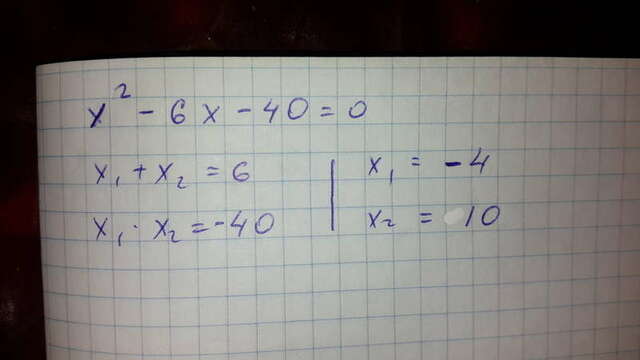 x² - 6x - 40 = 0
x₁ + x₂ = 6 | x₁ = -4
x₁ · x₂ = -40 | x₂ = 10